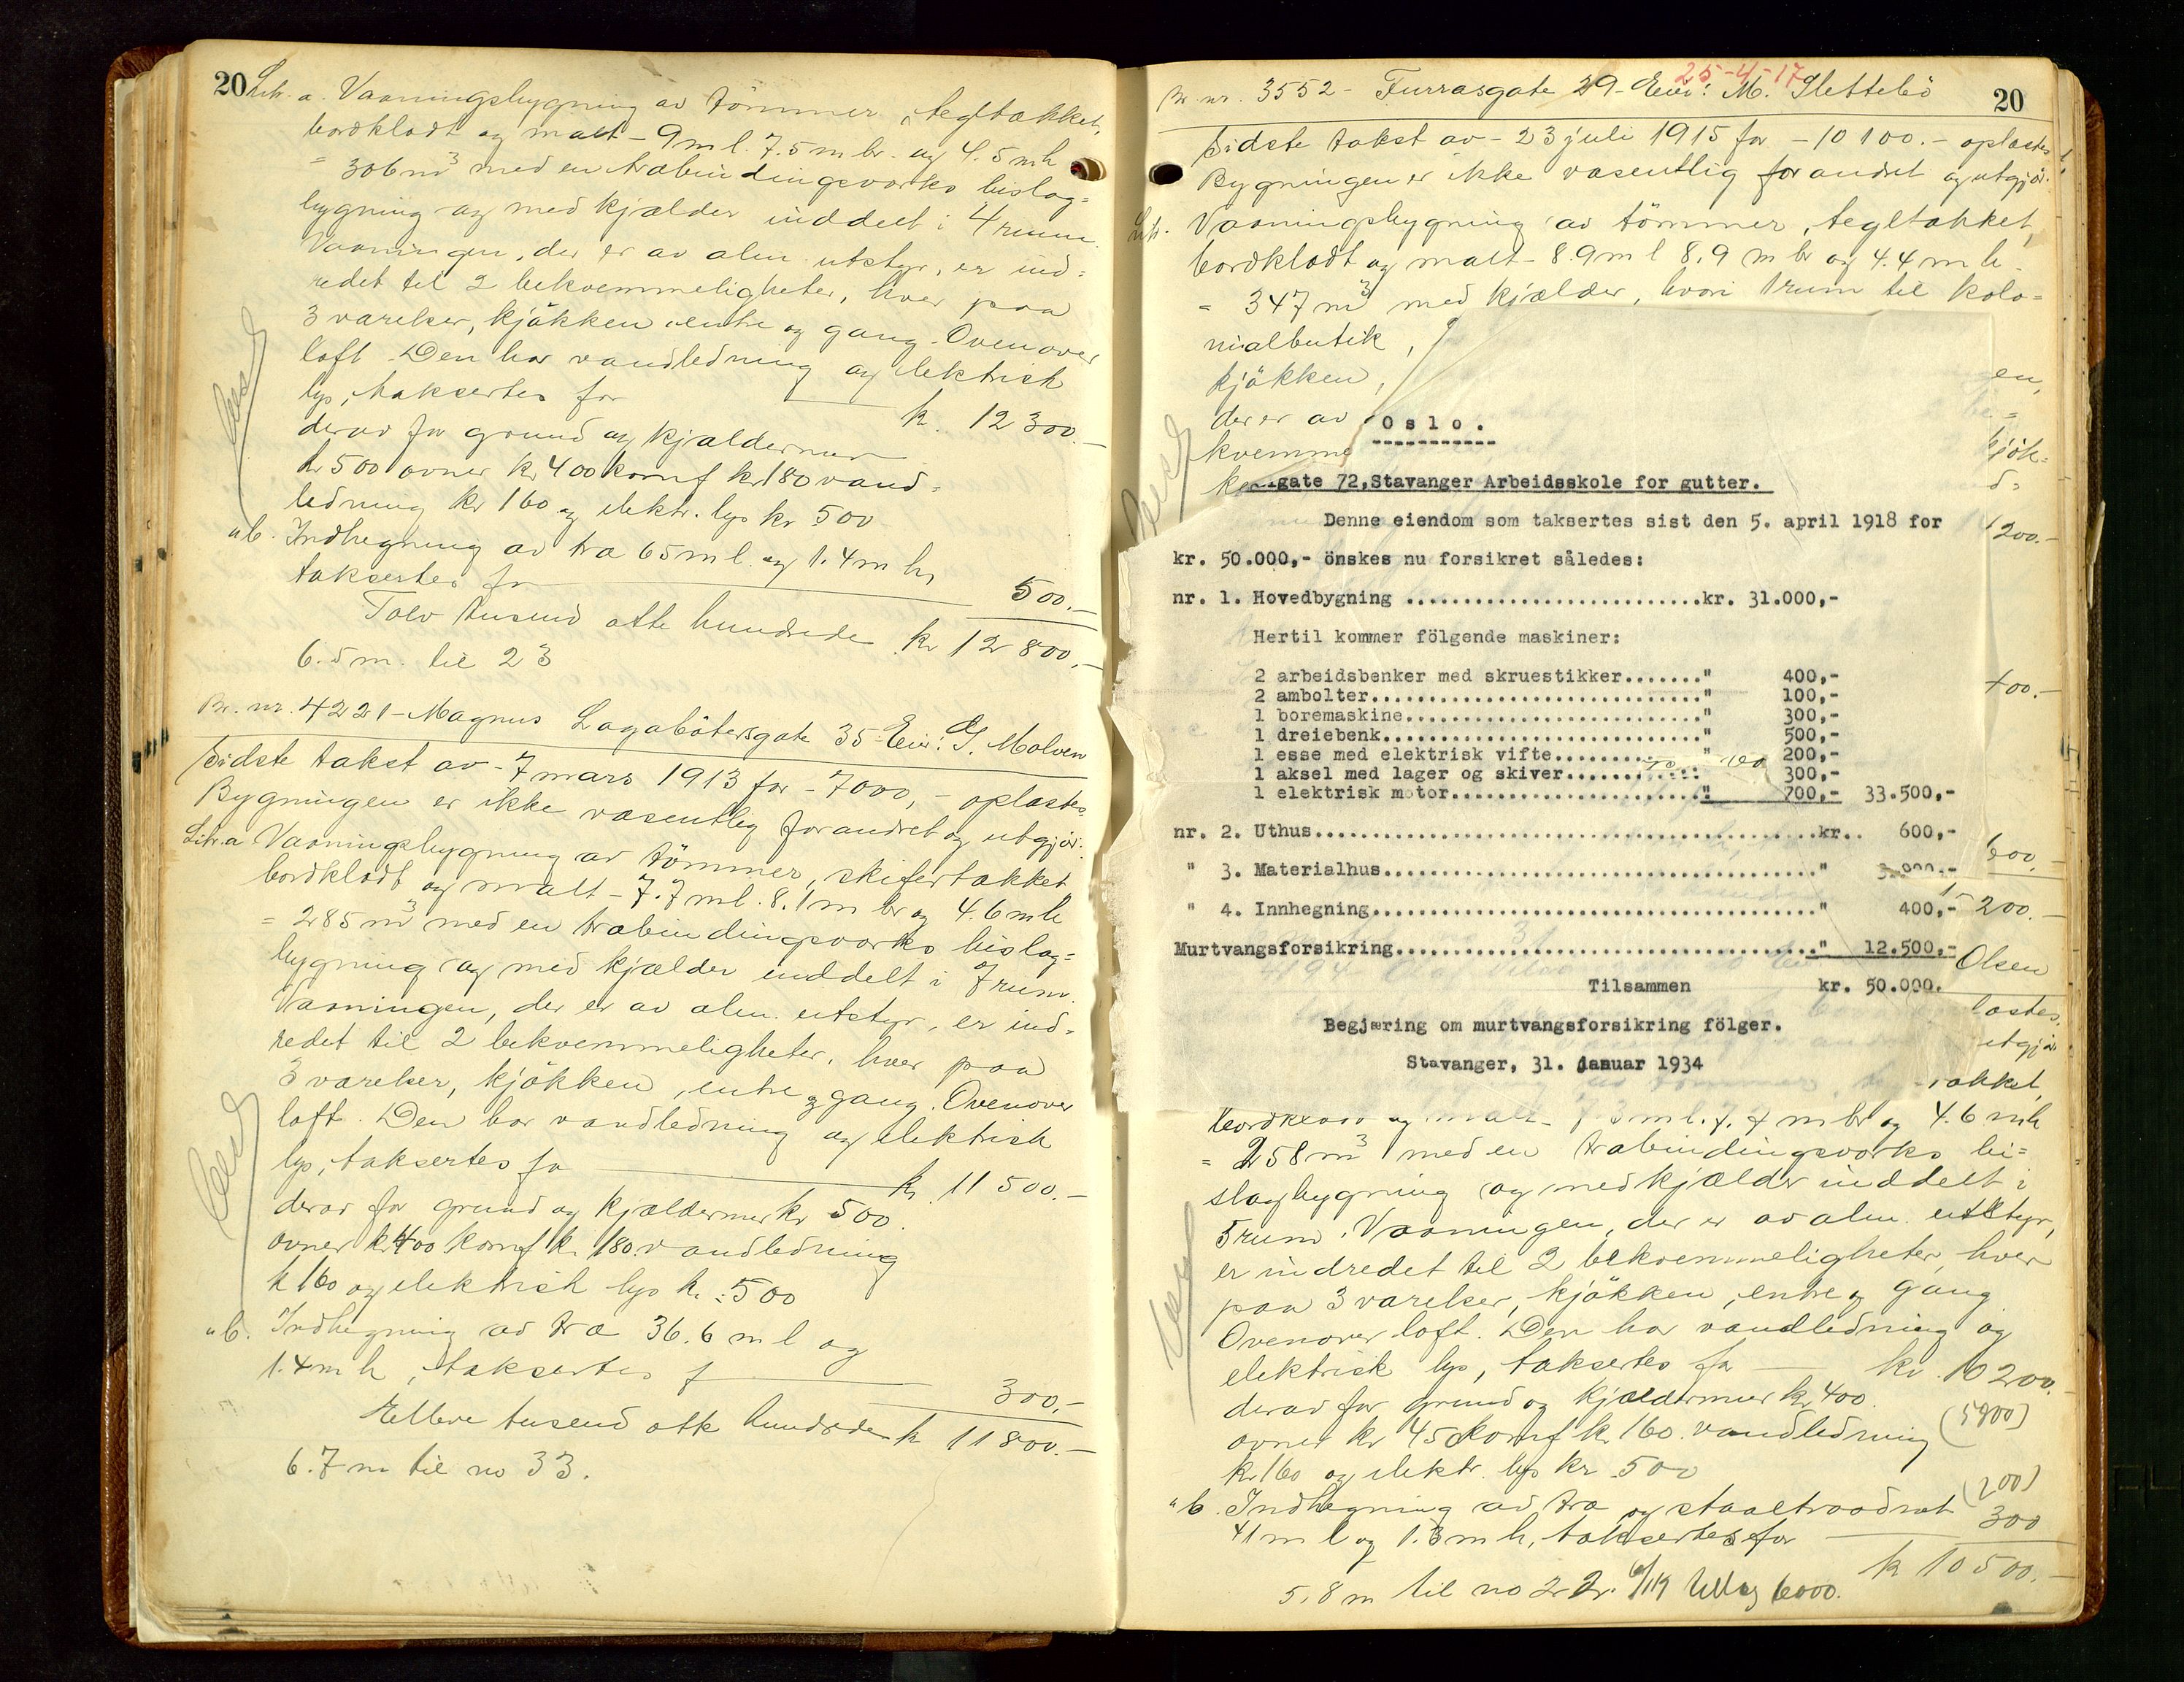 20
Litr. a. Vaaningsbygning av tömmer, tegltækket,
bordklædt og malt - 9 m l. 7.5 m br. og 4.5 m h
= 306 m³ med en træbindingsverks bislag=
bygning og med kjælder inddelt i 4 rum.
Vaaningen, der er av alm. utstyr, er ind=
redet til 2 bekvemmeligheter, hver paa
3 værelser, kjökken entre og gang. Ovenover
loft. Den har vandledning og elektrisk
lys, taksertes for kr. 12 300.-
derav for grund og kjældermur
kr 500 ovner kr 400 komf kr 180 vand=
ledning kr 160 og elektr. lys kr 500
" b. Indhegning av træ 65 m l. og 1.4 m h,
taksertes for 500.-
Tolv tusend otte hundrede kr 12 800.-
6.5 m. til 23
Br. nr. 4221 - Magnus Lagabötersgate 35 Eier: G. Molven
Sidste takst av - 7 mars 1913 for - 7000,- oplæstes.
Bygningen er ikke væsentlig forandret og utgjör:
Litr. a Vaaningsbygning av tömmer, skifertækket
bordklædt og malt - 7.7 m l. 8.1 m br og 4.6 m h
= 285 m³ med en træbindingsverks bislag=
bygning og med kjælder inddelt i 7 rum.
Vaaningen, der er av alm. utstyr, er ind=
redet til 2 bekvemmeligheter, hver paa
3 værelser, kjökken, entre og gang. Ovenover
loft. Den har vandledning og elektrisk
lys, taksertes for kr. 11 500.-
derav for grund og kjældermur kr 500.
ovner kr 400 komf kr. 180 vandledning
kr 160 og elektrisk lys kr. 500
" b. Indhegning av træ 36.6 m l og
1.4 m h, taksertes f 300.-
Elleve tusend otte hundrede kr 11 800.-
6.7 m til no 33.
25-4-17
Br. nr. 3552 - Furrasgate 29 - Eier: M. Slettebö 20
Sidste takst av - 23 juli 1915 for - 10 100.- oplæstes
Bygningen er ikke væsentlig forandret og utgjör.
Litr. Vaaningsbygning av tömmer, tegltækket,
bordklædt og malt - 8.9 m l 8.9 m br og 4.4 m h
= 347 m³ med kjælder, hvori 1 rum til kolo=
nialbutik,
kjökken, en,
der er av be=
kvemme kjök=
Oslo.
gate 72, Stavanger Arbeidsskole for gutter.
Denne eiendom som taksertes sist den 5. april 1918 for
200.-
kr. 50.000,- önskes nu forsikret således:
nr. 1. Hovedbygning ..........................kr. 31.000,-
Hertil kommer fölgende maskiner:
2 arbeidsbenker med skruestikker......." 400,-
400.-
2 ambolter............................" 100,-
1 boremaskine........................." 300,-
1 dreiebenk..........................." 500,-
1 esse med elektrisk vifte............" 200,-
1 aksel med lager og skiver........... 300,-
1 elektrisk motor....................." 700,- 33.500,-
nr. 2. Uthus...........................................kr.. 600,-
600.-
" 3. Materialhus....................................." 3.000,-
" 4. Innhegning......................................" 400,-
15 200.-
Murtvangsforsikring...................................." 12.500,-
Olsen
Tilsammen kr. 50.000.
læstes.
Begjæring om murtvangsforsikring fölger.
utgjör
Stavanger, 31. januar 1934
tækket,
bordklædt og malt - 7.3 m l. 7.4 m br og 4.6 m h
= 258 m³ med en træbindingsverks bi=
slagbygning og med kjælder inddelt i
5 rum. Vaaningen, der er av alm. utstyr,
er indredet til 2 bekvemmeligheter, hver
paa 3 værelser, kjökken, entre og gang
Ovenover loft. Den har vandledning og
elektrisk lys, taksertes for kr. 10 200.-
derav for grund og kjældermur kr 400.
(5900)
ovner kr 450 komf kr. 160. vandledning
kr 160 og elektr. lys kr 500
(200)
" b. Indhegning av træ og staaltraadnet
300
41 m l og 1.3 m h, taksertes for
kr 10 500.-
5.8 m til no 22. 6000.